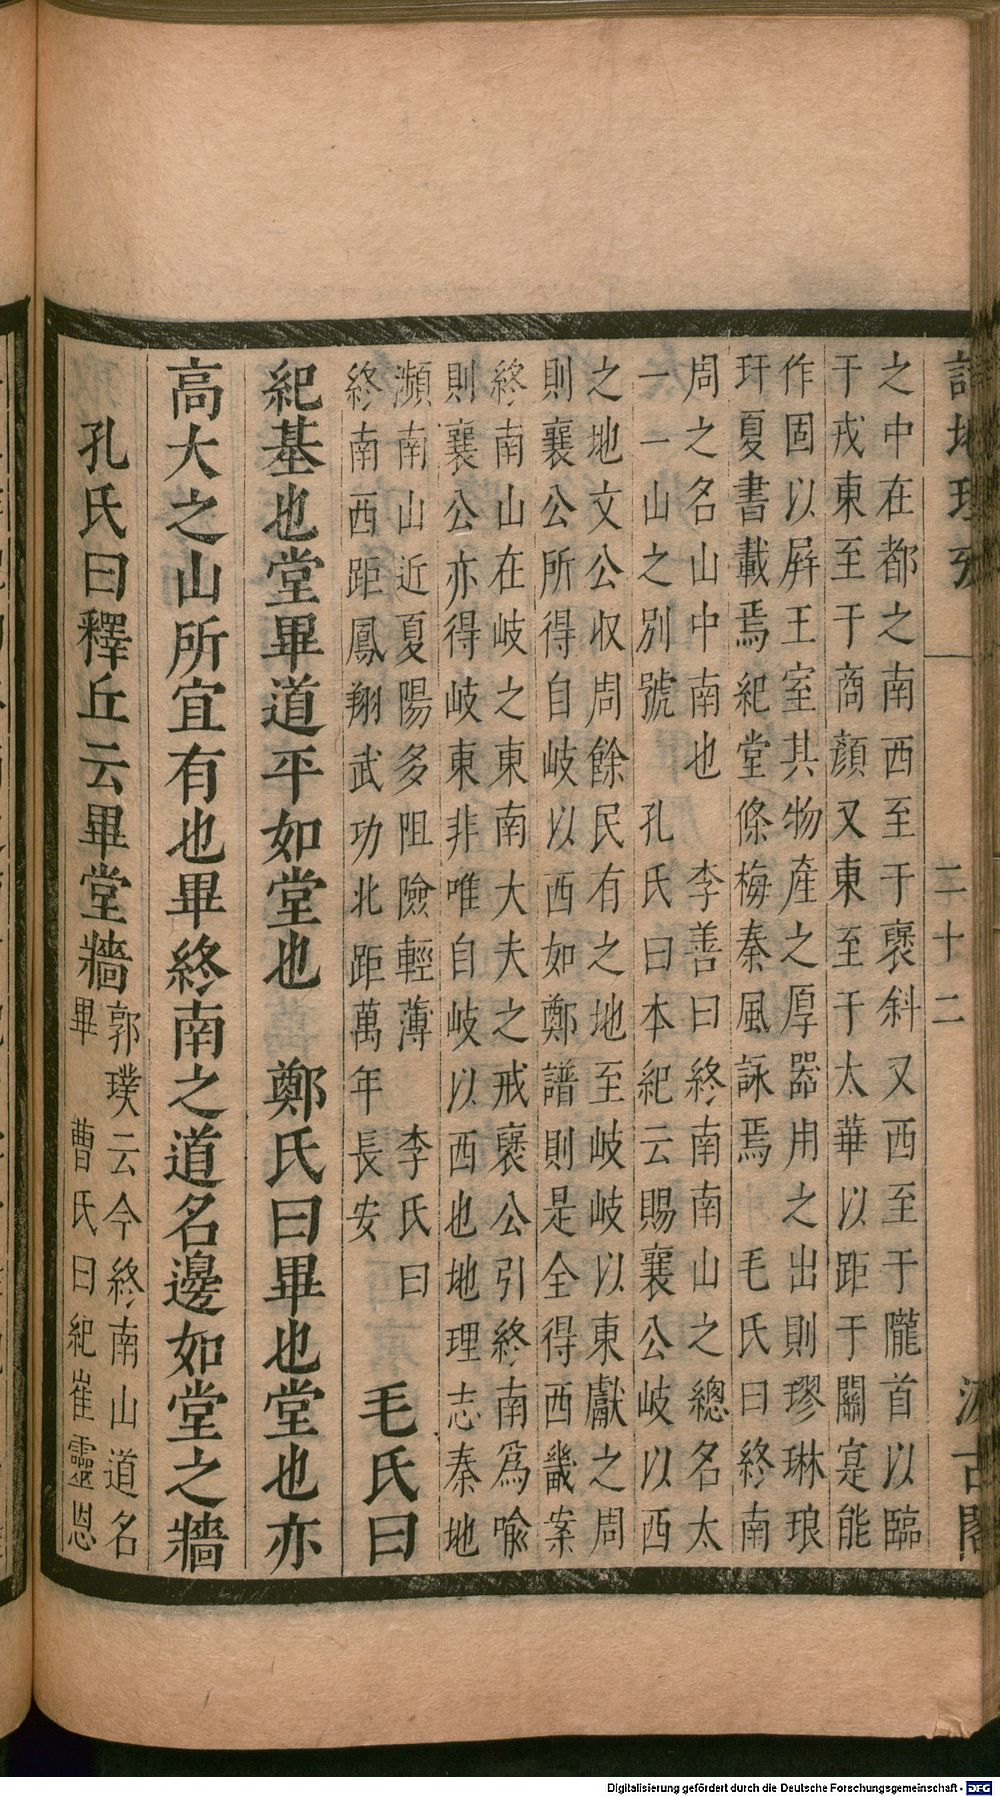 之中在都之南西至于褒斜又西至于隴首以臨
于戎東至于商顔又東至于太華以距于關寔能
作固以屛王室其物產之厚器用之出則璆琳琅
玕夏書載焉紀堂條梅秦風詠焉　毛氏曰終南
周之名山中南也　李善曰終南南山之總名太
一一山之別號　孔氏曰本紀云賜襄公岐以西
之地文公收周餘民有之地至岐岐以東獻之周
則襄公所得自岐以西如鄭譜則是全得西畿案
終南山在岐之東南大夫之戒襃公引終南爲喩
則襄公亦得岐東非唯自岐以西也地理志秦地
瀕南山近夏陽多阻險輕薄　李氏曰
終南西距鳳翔武功北距萬年長安
毛氏曰
紀基也堂畢道平如堂也　鄭氏曰畢也堂也亦
高大之山所宜有也畢終南之道名邊如堂之牆
孔氏曰釋丘云畢堂牆
郭璞云今終南山道名
畢　曹氏曰紀崔靈恩
二十二
汲古閣
Digitalisierung gefördert durch die Deutsche Forschungsgemeinschaft - DFG